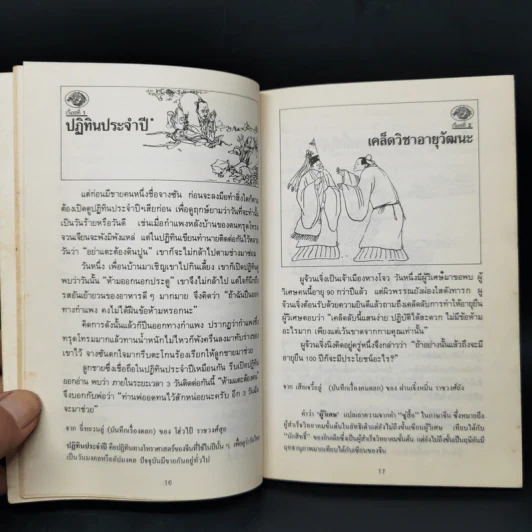 เรื่องที่ 1
ปฏิทินประจำปี*
แต่ก่อนมีชายคนหนึ่งชื่อจางซัน ก่อนจะลงมือทำสิ่งใดก็ตาม
ต้องเปิดดูปฏิทินประจำปีเสียก่อน เพื่อดูฤกษ์ยามว่าวันที่จะทำนั้น
เป็นวันร้ายหรือวันดี เช่นเมื่อกำแพงหลังบ้านของตนทรุดโทรม
จวนเจียนจะพังมิพังแหล่ แต่ในปฏิทินเขียนทำนายติดต่อกันไว้หลาย
วันว่า "อย่าแตะต้องดินปูน" เขาก็จะไม่กล้าไปตามช่างมาซ่อม
วันหนึ่ง เพื่อนบ้านมาเชิญเขาไปกินเลี้ยง เขาก็เปิดปฏิทิน
พบว่าวันนั้น "ห้ามออกนอกประตู" เขาจึงไม่กล้าไป แต่ใจก็นึกถึง
รสอันเอร็ดอร่อยของอาหารดี ๆ มากมาย จึงคิดว่า "ถ้าฉันปีนออก
ทางกำแพง คงไม่ได้ฝืนข้อห้ามหรอกนะ"
คิดการดังนั้นแล้วก็ปีนออกทางกำแพง ปรากฏว่ากำแพงที่
ทรุดโทรมมากแล้วทานน้ำหนักไม่ไหวก็พังครืนลงมาทับร่างของ
เขาไว้ จางซันตกใจมากรีบตะโกนร้องเรียกให้ลูกชายมาช่วย
ลูกชายซึ่งเชื่อถือในปฏิทินประจำปีเหมือนกัน รีบเปิดปฏิทิน
ออกอ่าน พบว่า ภายในระยะเวลา 3 วันติดต่อกันนี้ "ห้ามแตะต้องดิน"
จึงบอกกับพ่อว่า "ท่านพ่ออดทนไว้สักหน่อยนะครับ อีก 3 วันผม
จะมาช่วย"
จาก (บันทึกเรื่องตลก) ของ ราชวงศ์สุย
ปฏิทินประจำปี คือปฏิทินทางโหราศาสตร์ของจีนที่ใช้ในปีนั้น ๆ เพื่อดูว่าวันไหน
เป็นวันมงคลหรืออัปมงคล ปัจจุบันมีขายกันอยู่ทั่วไป
16
เรื่องที่ 2
เคล็ดวิชาอายุวัฒนะ
ผู้จ้วนเจิ้งเป็นเจ้าเมืองหางโจว วันหนึ่งมีผู้วิเศษ*มาขอพบ ผู้
วิเศษคนนี้อายุ 90 กว่าปีแล้ว แต่ผิวพรรณยังผ่องใสดังทารก ผู
จ้วนเจิ้งต้อนรับด้วยความยินดีแล้วถามถึงเคล็ดลับการทำให้อายุยืน
ผู้วิเศษตอบว่า "เคล็ดลับนี้แสนง่าย ปฏิบัติได้สะดวก ไม่มีข้อห้าม
อะไรมาก เพียงแต่เว้นขาดจากกามคุณเท่านั้น"
ผู้จ้วนเจิ้งนิ่งคิดอยู่ครู่หนึ่งจึงกล่าวว่า "ถ้าอย่างนั้นแล้วถึงจะมี
อายุยืน 100 ปีก็จะมีประโยชน์อะไร?"
จาก (บันทึกเรื่องคนตลก) ของ ราชวงศ์ถัง
คำว่า "ผู้วิเศษ" แปลมาจากคำว่า "ซู่ซื่อ" ในภาษาจีน ซึ่งหมายถึง
ผู้สำเร็จวิทยาคมชั้นต้นในลัทธิเต๋าแต่ยังไม่ถึงขั้นเซียนผู้วิเศษ เทียบได้กับ
"นักสิทธิ์" ของอินเดียซึ่งเป็นผู้สำเร็จวิทยาคมชั้นต้น แต่ยังไม่ถึงขั้นเป็นฤๅษีอันมี
ฤทธานุภาพมากเทียบได้กับเซียนของจีน
17